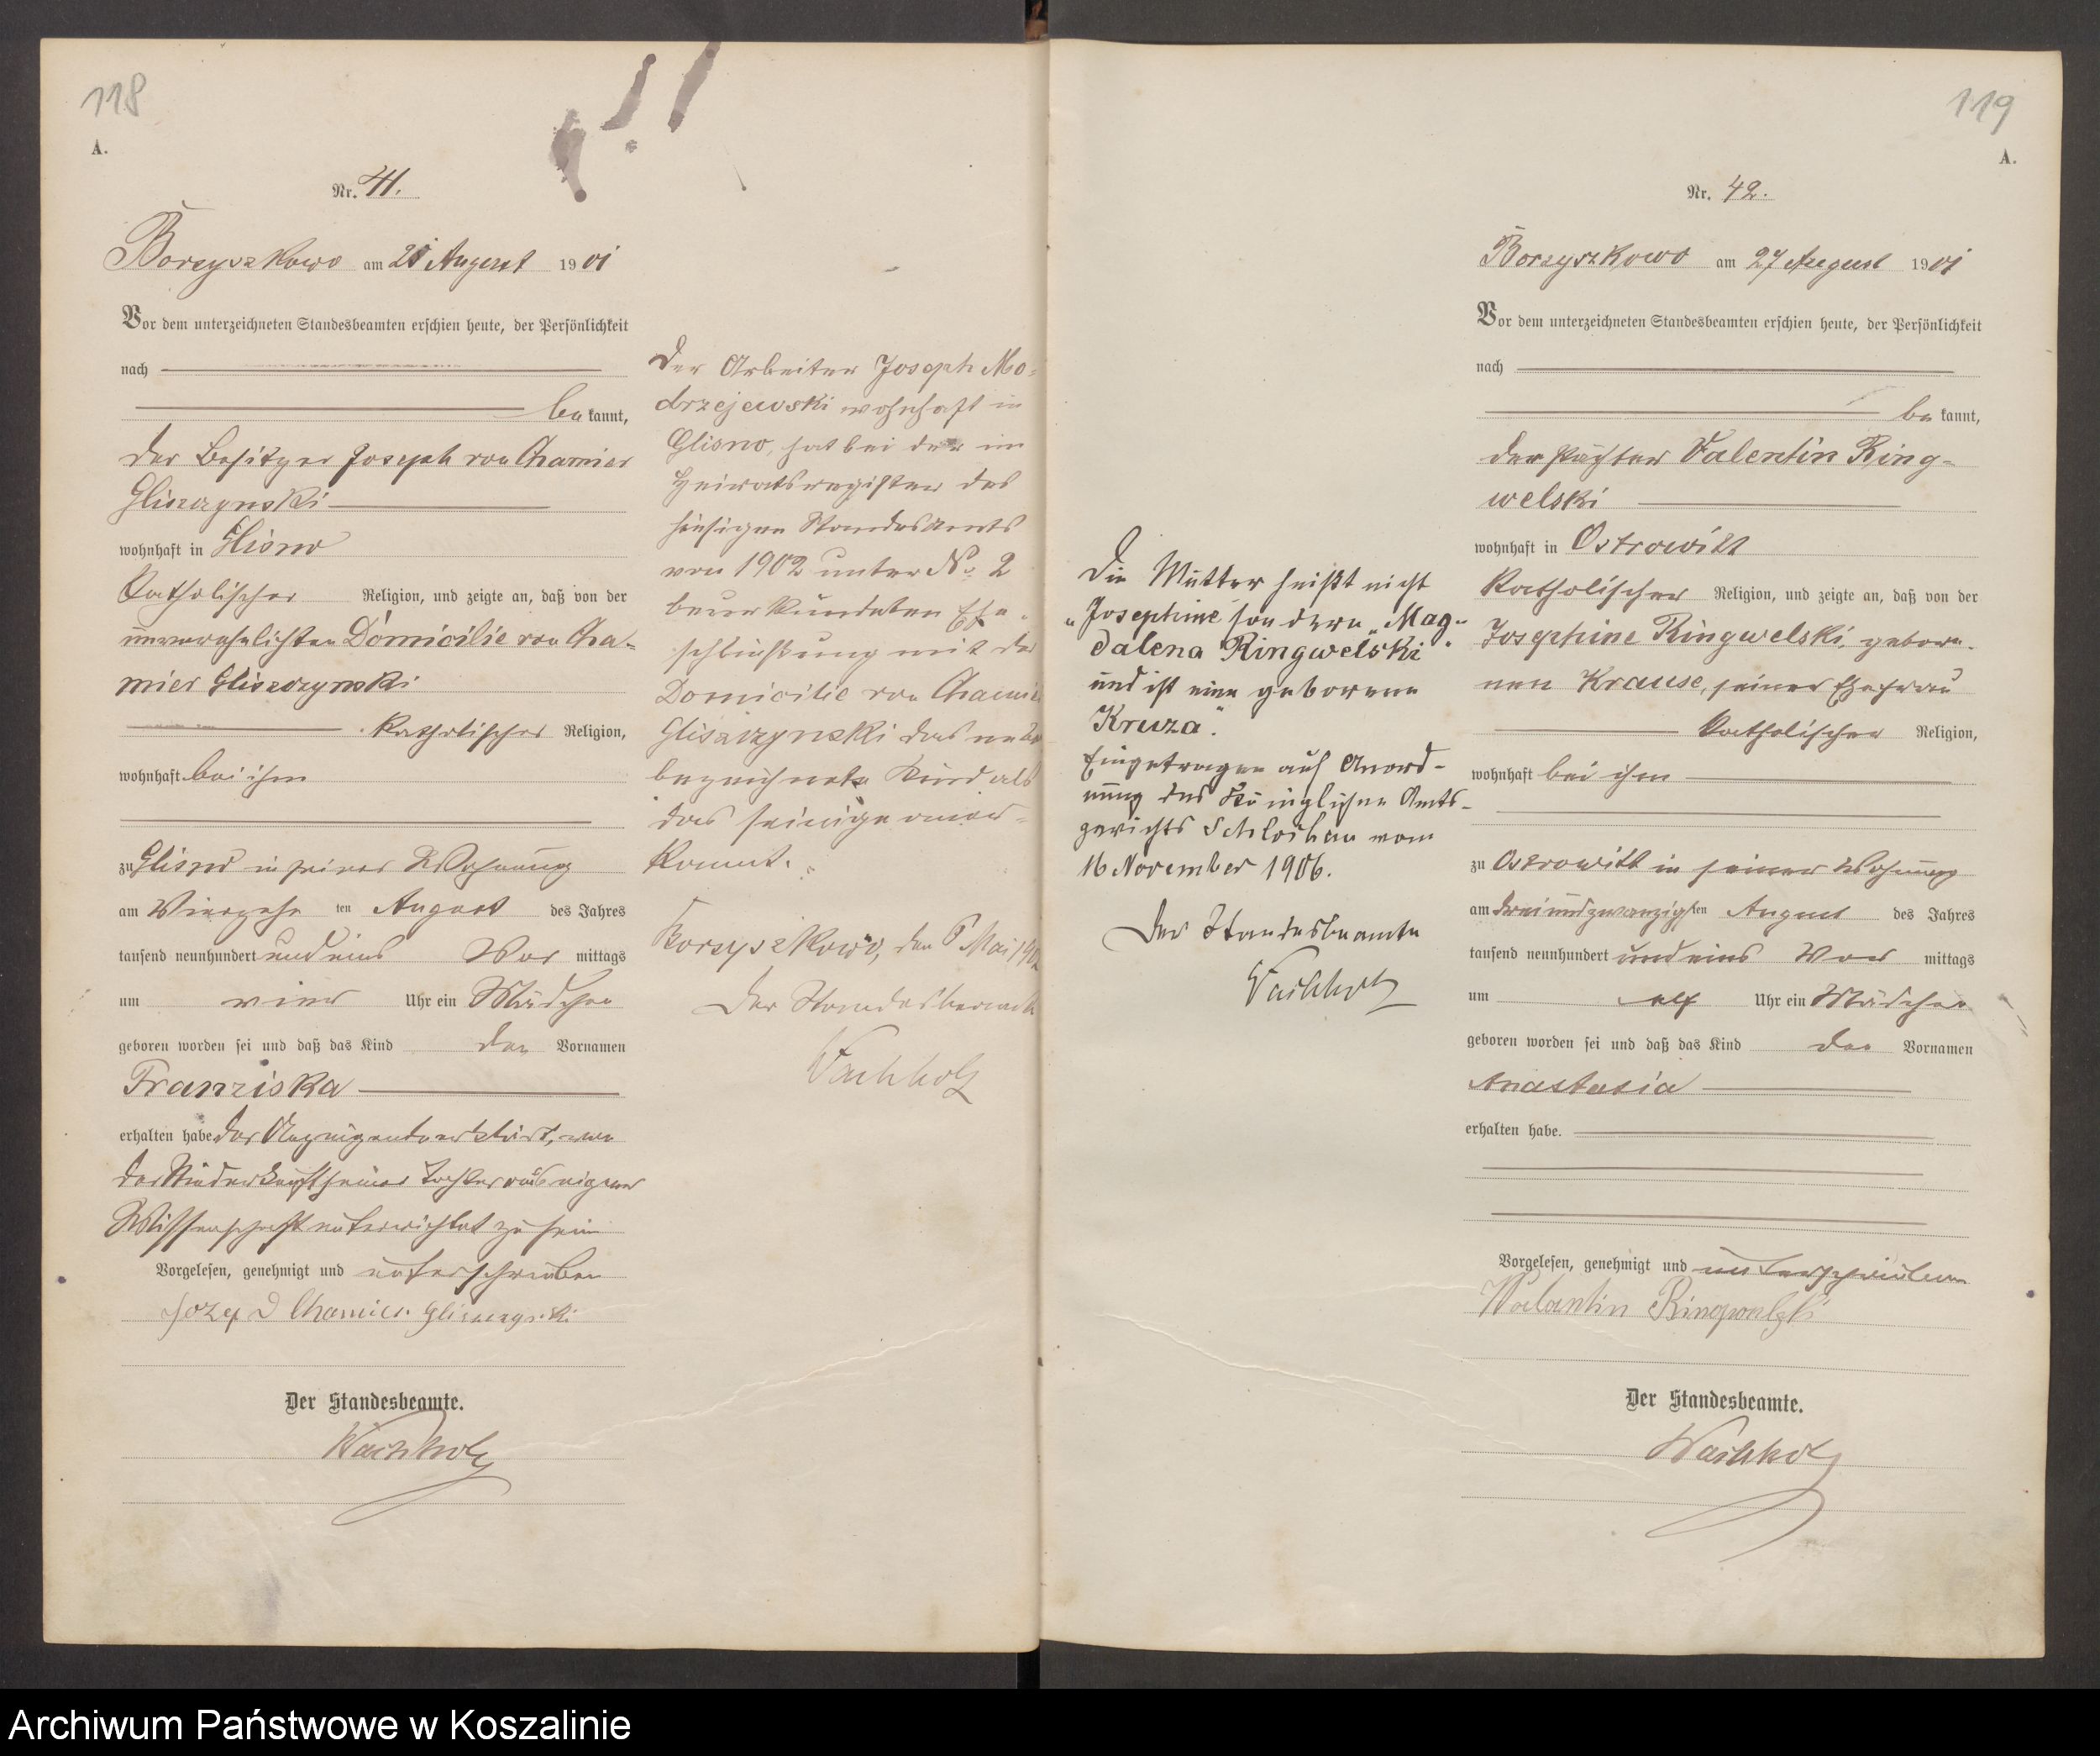 118
A.
Nr. 41.
Borzyszkowo am 21 August 1901
Vor dem unterzeichneten Standesbeamten erschien heute, der Persönlichkeit
nach
be kannt,
der Besitzer Joseph von Chamier
Gliszczynski
wohnhaft in Glisno
katholischer Religion, und zeigte an, daß von der
unverehelichten Domicilie von Cha-
mier Gliszczynski
katholischer Religion,
wohnhaft bei ihm
zu Glisno in seiner Wohnung
am Vierzehn ten August des Jahres
tausend neunhundert und eins Vor mittags
um vier Uhr ein Mädchen
geboren worden sei und daß das Kind den Vornamen
Franziska
erhalten habe. Der Anzeigende erklärt, von
der Niederkunft seiner Tochter aus eigner
Wissenschaft unterrichtet zu sein
Vorgelesen, genehmigt und unterschrieben
Jozef Chamier Gliszczynski
Der Standesbeamte.
Vachholz
Der Arbeiter Joseph Mo-
drzejewski wohnhaft in
Glisno, hat bei der im
Heiratsregister des
hiesigen Standesamts
von 1902 unter No. 2
beurkundeten Ehe-
schließung mit der
Domicilie von Chamier
Gliszczynski das neben
bezeichnete Kind als
das seinige aner-
kannt.
Borzyszkowo, den 6 Mai 1902
Der Standesbeamte
Vachholz
119
A.
Nr. 42.
Borzyszkowo am 27 August 1901
Vor dem unterzeichneten Standesbeamten erschien heute, der Persönlichkeit
nach
be kannt,
der Pächter Valentin Ring-
welski
wohnhaft in Ostrowitt
katholischer Religion, und zeigte an, daß von der
Josephine Ringwelski, gebore-
nen Krause, seiner Ehefrau
katholischer Religion,
wohnhaft bei ihm
zu Ostrowitt in seiner Wohnung
am dreiundzwanzigsten August des Jahres
tausend neunhundert und eins Vor mittags
um elf Uhr ein Mädchen
geboren worden sei und daß das Kind den Vornamen
Anastasia
erhalten habe.
Vorgelesen, genehmigt und unterschrieben
Walantin Ringwelski
Der Standesbeamte.
Vachholz
Die Mutter heißt nicht
"Josephine" sondern "Mag-
dalena Ringwelski"
und ist eine geborene
"Kruza".
Eingetragen auf Anord-
nung des Königlichen Amts-
gerichts Schlochau vom
16 November 1906.
Der Standesbeamte
Vachholz
Archiwum Państwowe w Koszalinie